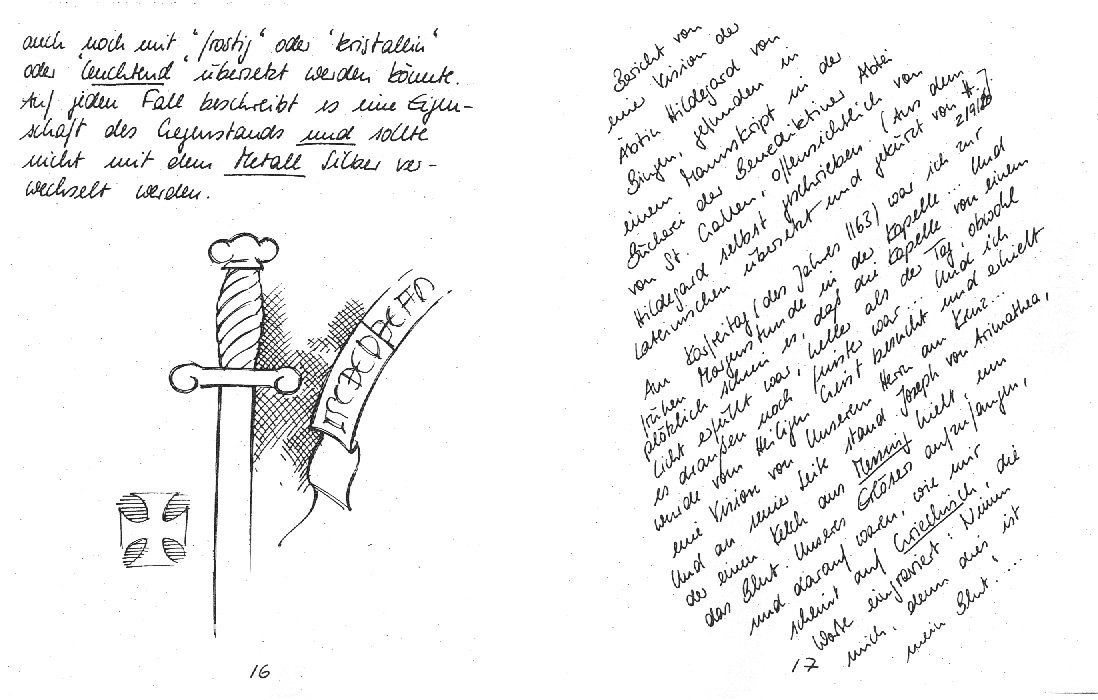 auch noch mit "frostig" oder "kristallin"
oder "leuchtend" übersetzt werden könnte.
Auf jeden Fall beschreibt es eine Eigen-
schaft des Gegenstands und sollte
nicht mit dem Metall Silber ver-
wechselt werden.
16
Bericht von
einer Vision der
Äbtin Hildegard von
Bingen, gefunden in
einem Manuskript in der
Bücherei der Benediktiner Abtei
von St. Gallen, offensichtlich von
Hildegard selbst geschrieben. (Aus dem
Lateinischen übersetzt und gekürzt von H.J.
Am Karfreitag (des Jahres 1163) war ich zur
frühen Morgenstunde in der Kapelle... Und
plötzlich schien es, daß die Kapelle von einem
Licht erfüllt war, heller als der Tag, obwohl
es draußen noch finster war... Und ich
wurde vom Heiligen Geist besucht und erhielt
eine Vision von Unserem Herrn am Kreuz...
Und an seiner Seite stand Joseph von Arimathea,
der einen Kelch aus Messing hielt, um
das Blut Unseres Erlösers aufzufangen,
und darauf waren, wie mir
scheint auf Griechisch, die
Worte eingraviert: Nimm
mich, denn dies ist
mein Blut!...
17